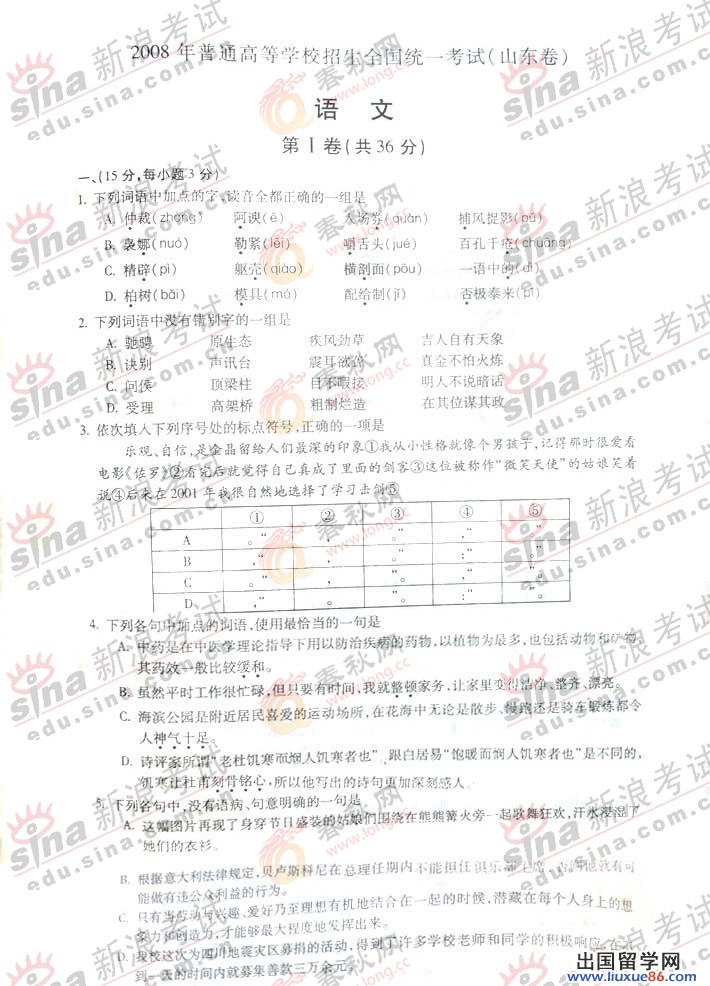 2008 年普通高等学校招生全国统一考试(山东卷)
语 文
第 Ⅰ 卷(共 36 分)
一、(15 分,每小题 3 分)
1. 下列词语中加点的字,读音全都正确的一组是
A. 仲裁(zhòng) 阿谀(ē) 入场券(quàn) 捕风捉影(bǔ)
B. 袅娜(nuó) 勒紧(lēi) 嚼舌头(jué) 百孔千疮(chuāng)
C. 精辟(pì) 躯壳(qiào) 横剖面(pōu) 一语中的(dì)
D. 柏树(bǎi) 模具(mó) 配给制(jǐ) 否极泰来(pǐ)
2. 下列词语中没有错别字的一组是
A. 驰骋 原生态 疾风劲草 吉人自有天象
B. 诀别 声讯台 震耳欲 真金不怕火炼
C. 问侯 顶梁柱 目不暇接 明人不说暗话
D. 受理 高架桥 粗制烂造 在其位谋其政
3. 依次填入下列序号处的标点符号,正确的一项是
乐观、自信,是金晶留给人们最深的印象①我从小性格就像个男孩子,记得那时很爱看
电影《佐罗》②看完后就觉得自己真成了里面的剑客③这位被称作“微笑天使”的姑娘笑着
说④后来在 2001 年我很自然地选择了学习击剑⑤
① ② ③ ④ ⑤
A 。“ , 。” ,“ 。”
B ,“ , ,” :“ 。”
C 。“ 。 ,” ,“ 。”
D ,“ 。 。” :“ 。”
4. 下列各句中加点的词语,使用最恰当的一句是
A. 中药是在中医学理论指导下用以防治疾病的药物,以植物为最多,也包括动物和矿物,
其药效一般比较缓和。
B. 虽然平时工作很忙碌,但只要有时间,我就整顿家务,让家里变得洁净、整齐、漂亮。
C. 海滨公园是附近居民喜爱的运动场所,在花海中无论是散步、慢跑还是骑车锻炼都令
人神气十足。
D. 诗评家所谓“老杜饥寒而悯人饥寒者也”,跟白居易“饱暖而悯人饥寒者也”是不同的,
饥寒让杜甫刻骨铭心,所以他写出的诗句更加深刻感人。
5. 下列各句中,没有语病、句意明确的一句是
A. 这幅图片再现了身穿节日盛装的姑娘们围绕在熊熊篝火旁一起歌舞狂欢,汗水浸湿了
她们的衣衫。
B. 根据意大利法律规定,贝卢斯科尼在总理任期内不能担任俱乐部主席,否则他就有可
能做有违公众利益的行为。
C. 只有当劳动与兴趣、爱好乃至理想有机地结合在一起的时候,潜藏在每个人身上的想
象力和创造力,才能够最大程度地发挥出来。
D. 我校这次为四川地震灾区募捐的活动,得到了许多学校老师和同学的积极响应,在不
到一天的时间内就募集善款三万余元。
sina 新浪考试
edu.sina.com.cn
春秋网
出国留学网
www.liuxue86.com